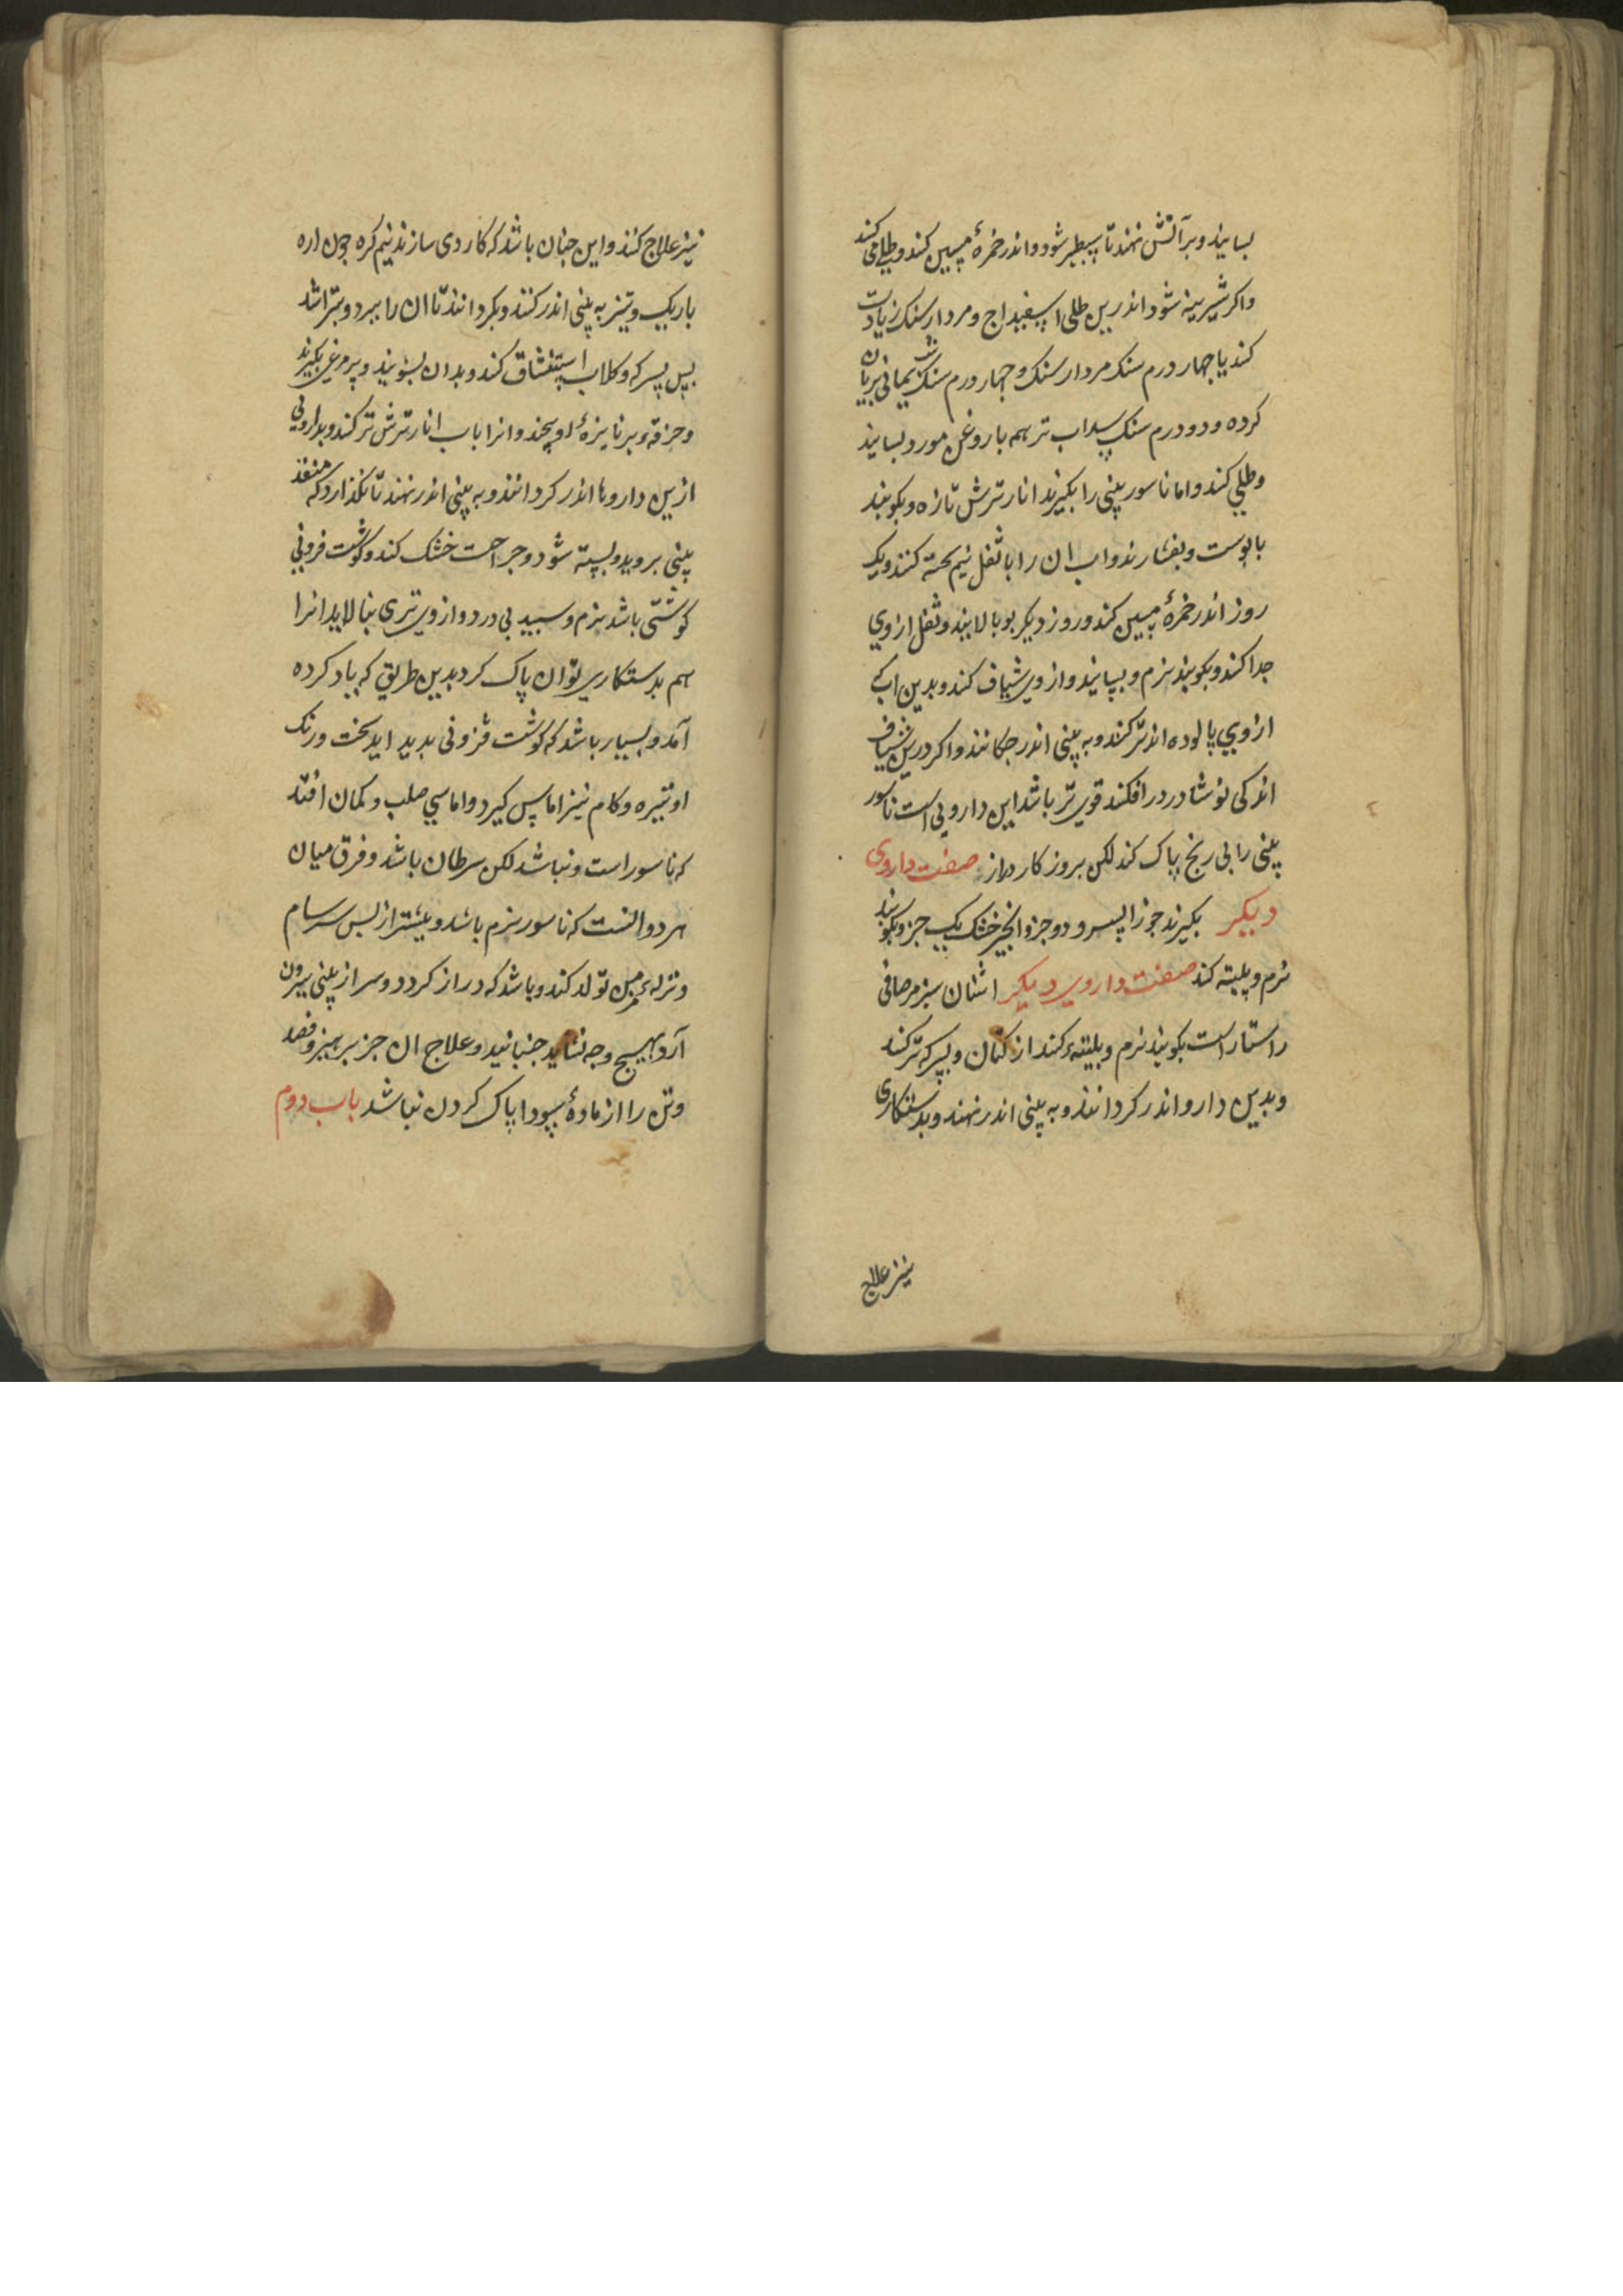 بسایند وبر آتش نهند تا سبطبر شود واندر خمرهٔ مسین کنند وطلی می کنند
واکر شیرینه شود اندرین طلی اسفیداج ومردارسنک زیادت
کنند یا چهار درم سنک مردارسنک وچهار درم سنک شب یمانی بریان
کرده ودو درم سنک سداب تر همه با روغن مورد بسایند
وطلی کنند واما ناسور بینی را بکیرند انار ترش تازه وبکوبند
با پوست وبفشارند واب ان را با ثفل نیم پخته کنند ویک
روز اندر خمرهٔ مسین کنند وروز دیکر بپالایند وثفل ازوی
جدا کنند وبکوبند نرم وبسایند وازوی شیاف کنند وبدین اب که
ازوی پالوده اند تر کنند وبه بینی اندر چکانند واکر درین شیاف
اندکی نوشادر درافکنند قوی تر باشد این دارویی است ناسور
بینی را بی رنج پاک کند لکن بروزکار دراز صفت داروی
دیکر بکیرند جوز السرو دو جزو انجیر خشک یک جزو بکوبند
نرم وبلیته کنند صفت داروی دیکر اشنان سبز مرصافی
راستاراست بکوبند نرم وبلیتهٔ کنند از کتان وبسرکه تر کنند
وبدین دارو اندر کردانند وبه بینی اندر نهند وبدستکاری
نیز علاج
نیز علاج کنند واین چنان باشد که کاردی سازند نیم کره چون اره
باریک وتیز به بینی اندر کنند وبکردانند تا ان را ببرد وبتراشد
پس بسرکه وکلاب استنشاق کنند وبدان بشویند وپر مرغی بکیرند
وخرقه وبر نایزهٔ او پیچند وانرا باب انار ترش تر کنند وبدارویی
ازین داروها اندر کردانند وبه بینی اندر نهند تا نکذارد که منفذ
بینی بروید وبسته شود وجراحت خشک کند وکوشت فزونی
کوشتی باشد نرم وسبید بی درد وازوی تری بپالاید انرا
هم بدستکاری توان پاک کرد بدین طریق که یاد کرده
آمد وبسیار باشد که کوشت فزونی بدید اید سخت ورنک
او تیره وکام نیز اماس کیرد واماسی صلب وکمان افتد
که ناسور است ونباشد لکن سرطان باشد وفرق میان
هر دو انست که ناسور نرم باشد وبیشتر از پس سرسام
ونزله مزمن تولد کند وباشد که دراز کردد وسر از بینی بیرون
آرد بهیچ وجه نشاید جنبانید وعلاج ان جز پرهیز وفصد
وتن را از مادهٔ سودا پاک کردن نباشد باب دوم